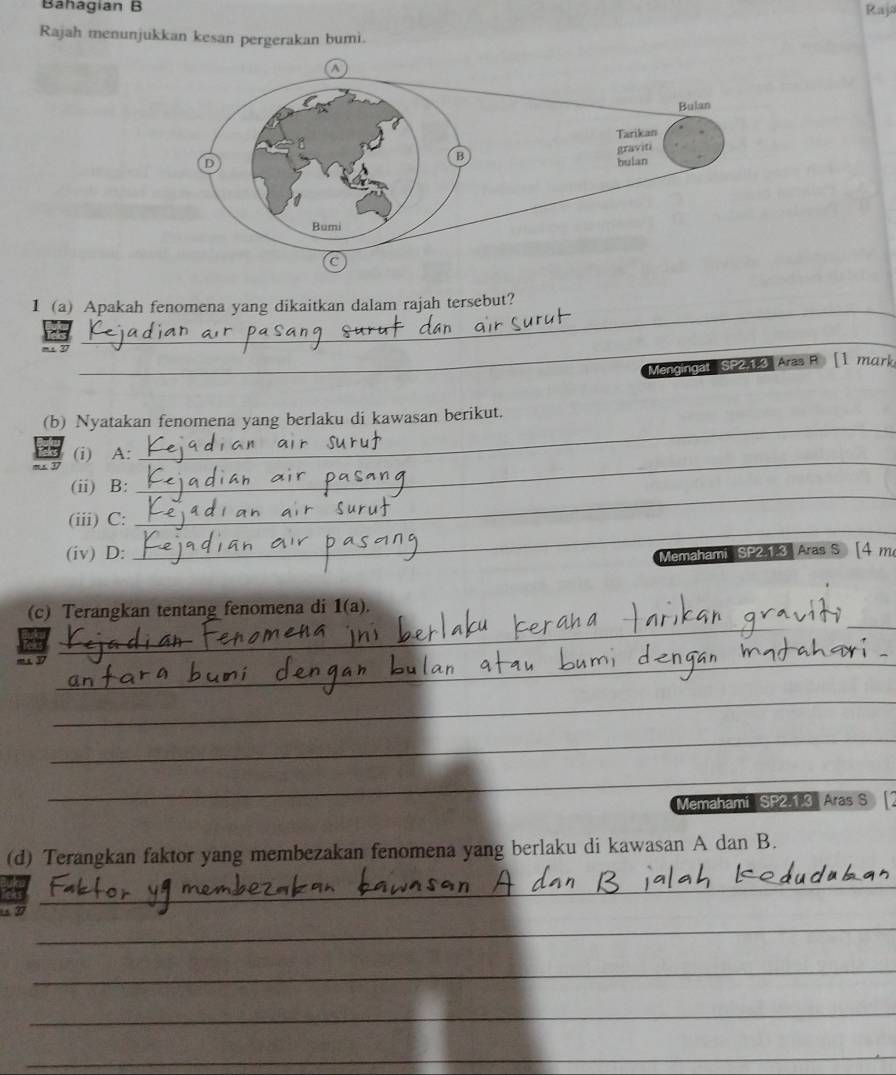 Bahagian B
Raja
Rajah menunjukkan kesan pergerakan bumi.
A
Bulan
Tarikan
graviti
bulan
D
B
Bumi
C
1 (a) Apakah fenomena yang dikaitkan dalam rajah tersebut?
Buku Teks m.s. 37
Kejadian air pasang surut dan air surut
Mengingat SP2.1.3 Aras R [1 mark
(b) Nyatakan fenomena yang berlaku di kawasan berikut.
Buku Teks m.s. 37
(i) A: Kejadian air surut
(ii) B: Kejadian air pasang
(iii) C: Kejadian air surut
(iv) D: Kejadian air pasang
Memahami SP2.1.3 Aras S [4 m
(c) Terangkan tentang fenomena di 1(a).
Buku Teks m.s. 37
Kejadian Fenomena ini berlaku kerana tarikan graviti
antara bumi dengan bulan atau bumi dengan matahari.
Memahami SP2.1.3 Aras S [2
(d) Terangkan faktor yang membezakan fenomena yang berlaku di kawasan A dan B.
Faktor yg membezakan kawasan A dan B ialah kedudukan